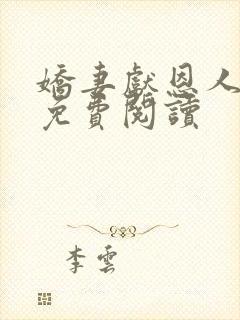 嬌妻獻恩人
免費閱讀
李雲